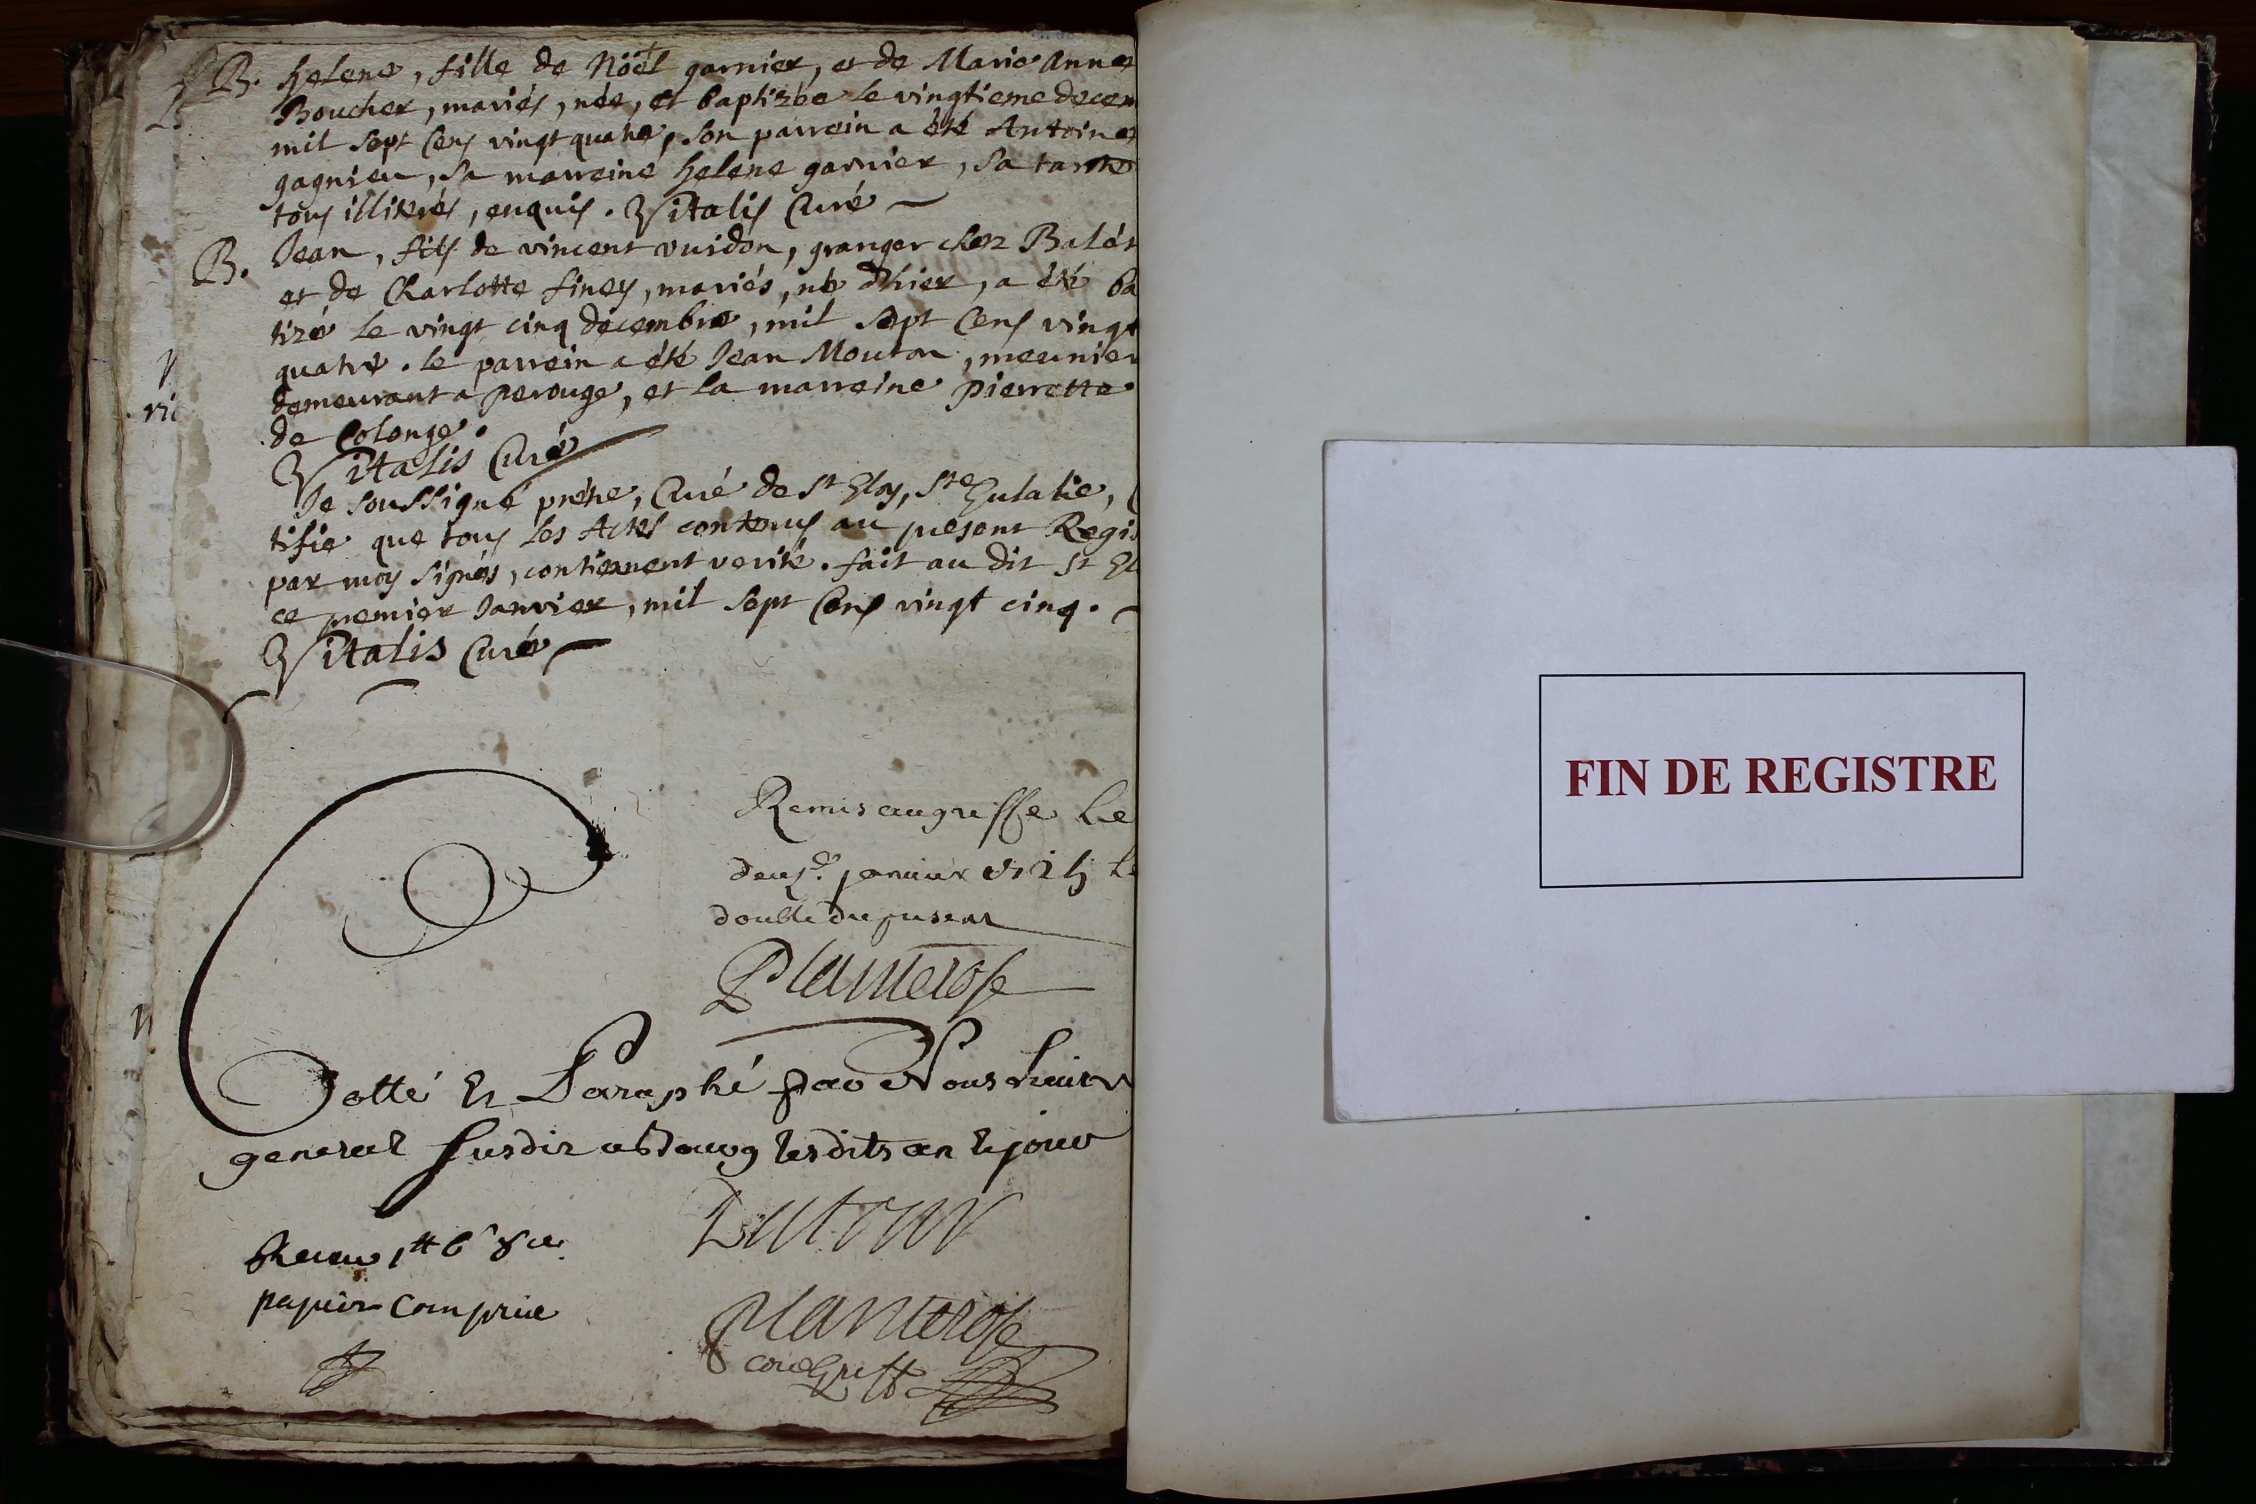 B. helene, fille de Nöel garnier, et de Marie Anne
Boucher, mariés, née, et baptizée le vingtieme decem
mil sept Cens vingt quatre, son parrein a été Antoine
gagnieu, sa marreine helene garnier, sa tante
tous illiterés, enquis. Vitalis Curé
B. Jean, fils de vincent vuidon, granger chez Balés
et de Charlotte finey, mariés, né d'hier, a été ba
tizé le vingt cinq decembre, mil sept Cens vingt
quatre. le parrein a été Jean Mouton, meunier
demeurant a perouge, et la marreine pierrette
de Colonge.
Vitalis Curé
Je soussigné prétre, Curé de St Eloy, Ste Eulalie,
tifie que tous les Actes contenus au present Regis
par moy signés, contiennent verité. fait au dit St El
ce premier Janvier, mil sept Cens vingt cinq.
Vitalis Curé
Remis au greffe le
janvier le
double du present
Planterose
Cotté et Paraphé par Nous
general susdit a Bourg lesdits an et jour
Latour
Receu
papier comprie
Planterose
FIN DE REGISTRE